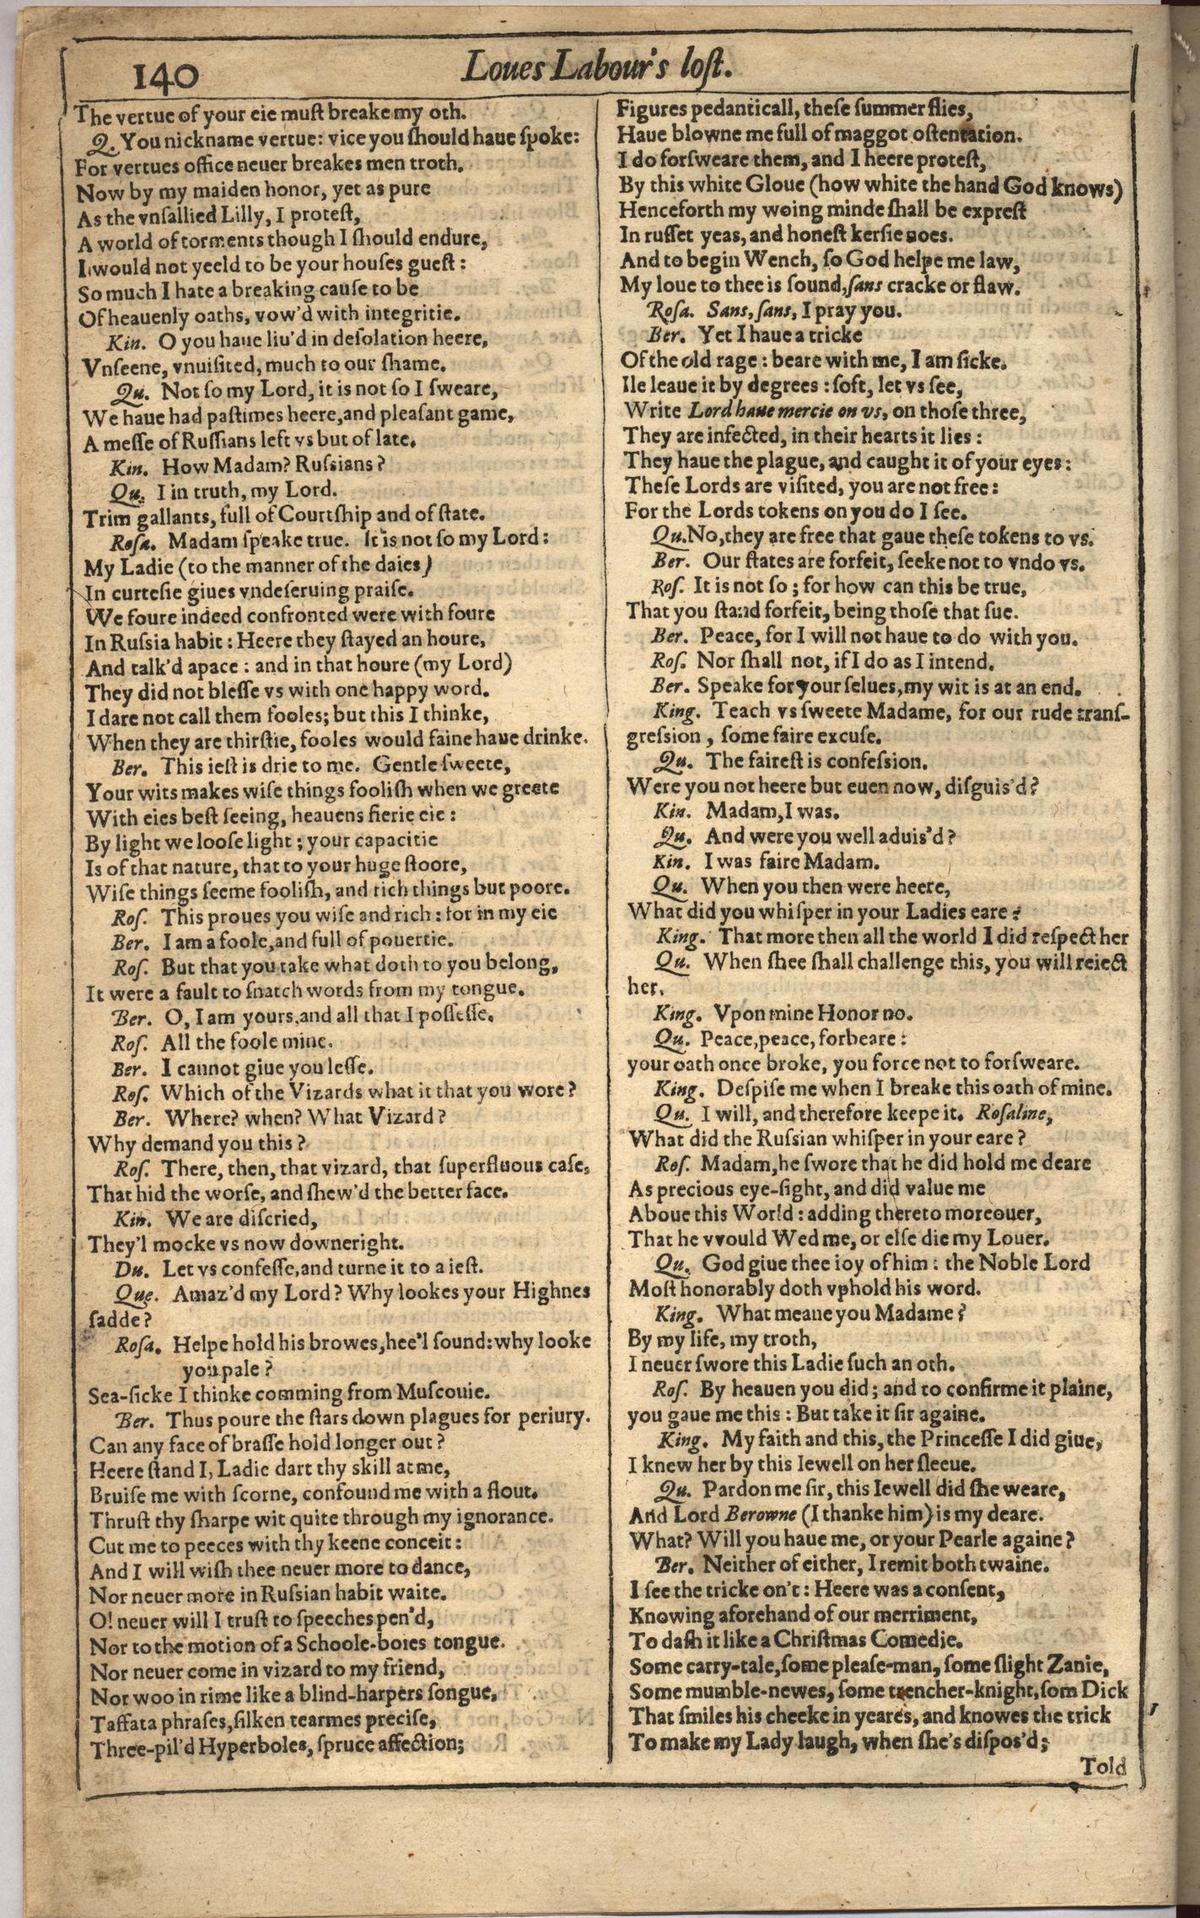 140
Loues Labour's lost.
The vertue of your eie must breake my oth.
Q. You nickname vertue: vice you should haue spoke:
For vertues office neuer breakes men troth.
Now by my maiden honor, yet as pure
As the vnsallied Lilly, I protest,
A world of torments though I should endure,
I would not yeeld to be your houses guest:
So much I hate a breaking cause to be
Of heauenly oaths, vow'd with integritie.
Kin. O you haue liu'd in desolation heere,
Vnseene, vnuisited, much to our shame.
Qu. Not so my Lord, it is not so I sweare,
We haue had pastimes heere, and pleasant game,
A messe of Russians left vs but of late.
Kin. How Madam? Russians?
Qu. I in truth, my Lord.
Trim gallants, full of Courtship and of state.
Rosa. Madam speake true. It is not so my Lord:
My Ladie (to the manner of the daies)
In curtesie giues vndeseruing praise.
We foure indeed confronted were with foure
In Russia habit: Heere they stayed an houre,
And talk'd apace: and in that houre (my Lord)
They did not blesse vs with one happy word.
I dare not call them fooles; but this I thinke,
When they are thirstie, fooles would faine haue drinke.
Ber. This iest is drie to me. Gentle sweete,
Your wits makes wise things foolish when we greete
With eies best seeing, heauens fierie eie:
By light we loose light; your capacitie
Is of that nature, that to your huge stoore,
Wise things seeme foolish, and rich things but poore.
Ros. This proues you wise and rich: for in my eie
Ber. I am a foole, and full of pouertie.
Ros. But that you take what doth to you belong,
It were a fault to snatch words from my tongue.
Ber. O, I am yours, and all that I possesse.
Ros. All the foole mine.
Ber. I cannot giue you lesse.
Ros. Which of the Vizards what it that you wore?
Ber. Where? when? What Vizard?
Why demand you this?
Ros. There, then, that vizard, that superfluous case,
That hid the worse, and shew'd the better face.
Kin. We are discried,
They'l mocke vs now downeright.
Du. Let vs confesse, and turne it to a iest.
Que. Amaz'd my Lord? Why lookes your Highnes
sadde?
Rosa. Helpe hold his browes, hee'l sound: why looke
you pale?
Sea-sicke I thinke comming from Muscouie.
Ber. Thus poure the stars down plagues for periury.
Can any face of brasse hold longer out?
Heere stand I, Ladie dart thy skill at me,
Bruise me with scorne, confound me with a flout.
Thrust thy sharpe wit quite through my ignorance.
Cut me to peeces with thy keene conceit:
And I will wish thee neuer more to dance,
Nor neuer more in Russian habit waite.
O! neuer will I trust to speeches pen'd,
Nor to the motion of a Schoole-boies tongue.
Nor neuer come in vizard to my friend,
Nor woo in rime like a blind-harpers songue,
Taffata phrases, silken tearmes precise,
Three-pil'd Hyperboles, spruce affection;
Figures pedanticall, these summer flies,
Haue blowne me full of maggot ostentation.
I do forsweare them, and I heere protest,
By this white Gloue (how white the hand God knows)
Henceforth my woing minde shall be exprest
In russet yeas, and honest kersie noes.
And to begin Wench, so God helpe me law,
My loue to thee is sound, sans cracke or flaw.
Rosa. Sans, sans, I pray you.
Ber. Yet I haue a tricke
Of the old rage: beare with me, I am sicke.
Ile leaue it by degrees: soft, let vs see,
Write Lord haue mercie on vs, on those three,
They are infected, in their hearts it lies:
They haue the plague, and caught it of your eyes:
These Lords are visited, you are not free:
For the Lords tokens on you do I see.
Qu. No, they are free that gaue these tokens to vs.
Ber. Our states are forfeit, seeke not to vndo vs.
Ros. It is not so; for how can this be true,
That you stand forfeit, being those that sue.
Ber. Peace, for I will not haue to do with you.
Ros. Nor shall not, if I do as I intend.
Ber. Speake for your selues, my wit is at an end.
King. Teach vs sweete Madame, for our rude trans-
gression, some faire excuse.
Qu. The fairest is confession.
Were you not heere but euen now, disguis'd?
Kin. Madam, I was.
Qu. And were you well aduis'd?
Kin. I was faire Madam.
Qu. When you then were heere,
What did you whisper in your Ladies eare?
King. That more then all the world I did respect her
Qu. When shee shall challenge this, you will reiect
her.
King. Vpon mine Honor no.
Qu. Peace, peace, forbeare:
your oath once broke, you force not to forsweare.
King. Despise me when I breake this oath of mine.
Qu. I will, and therefore keepe it. Rosaline,
What did the Russian whisper in your eare?
Ros. Madam, he swore that he did hold me deare
As precious eye-sight, and did value me
Aboue this World: adding thereto moreouer,
That he vvould Wed me, or else die my Louer.
Qu. God giue thee ioy of him: the Noble Lord
Most honorably doth vphold his word.
King. What meane you Madame?
By my life, my troth,
I neuer swore this Ladie such an oth.
Ros. By heauen you did; and to confirme it plaine,
you gaue me this: But take it sir againe.
King. My faith and this, the Princesse I did giue,
I knew her by this Iewell on her sleeue.
Qu. Pardon me sir, this Iewell did she weare,
And Lord Berowne (I thanke him) is my deare.
What? Will you haue me, or your Pearle againe?
Ber. Neither of either, I remit both twaine.
I see the tricke on't: Heere was a consent,
Knowing aforehand of our merriment,
To dash it like a Christmas Comedie.
Some carry-tale, some please-man, some slight Zanie,
Some mumble-newes, some trencher-knight, som Dick
That smiles his cheeke in yeares, and knowes the trick
To make my Lady laugh, when she's dispos'd;
Told